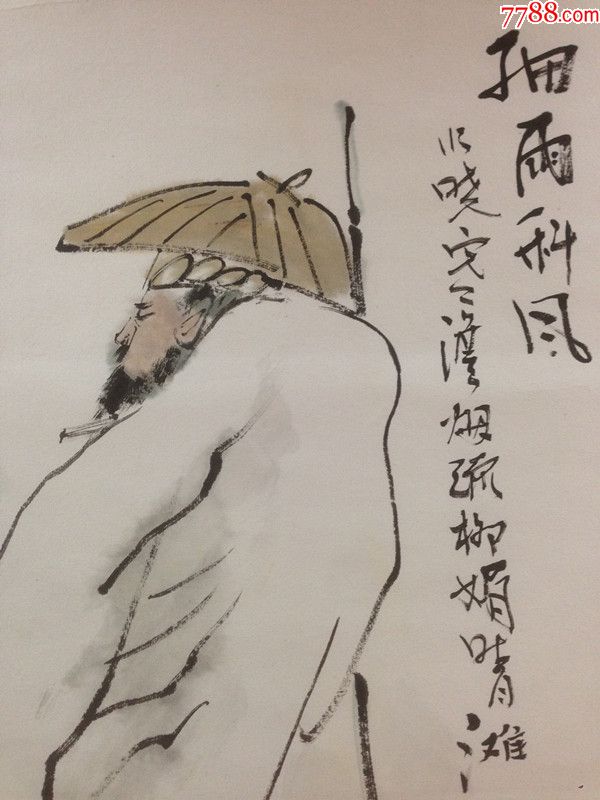 7788.com
细雨斜风
作晓寒淡烟疏柳媚晴滩